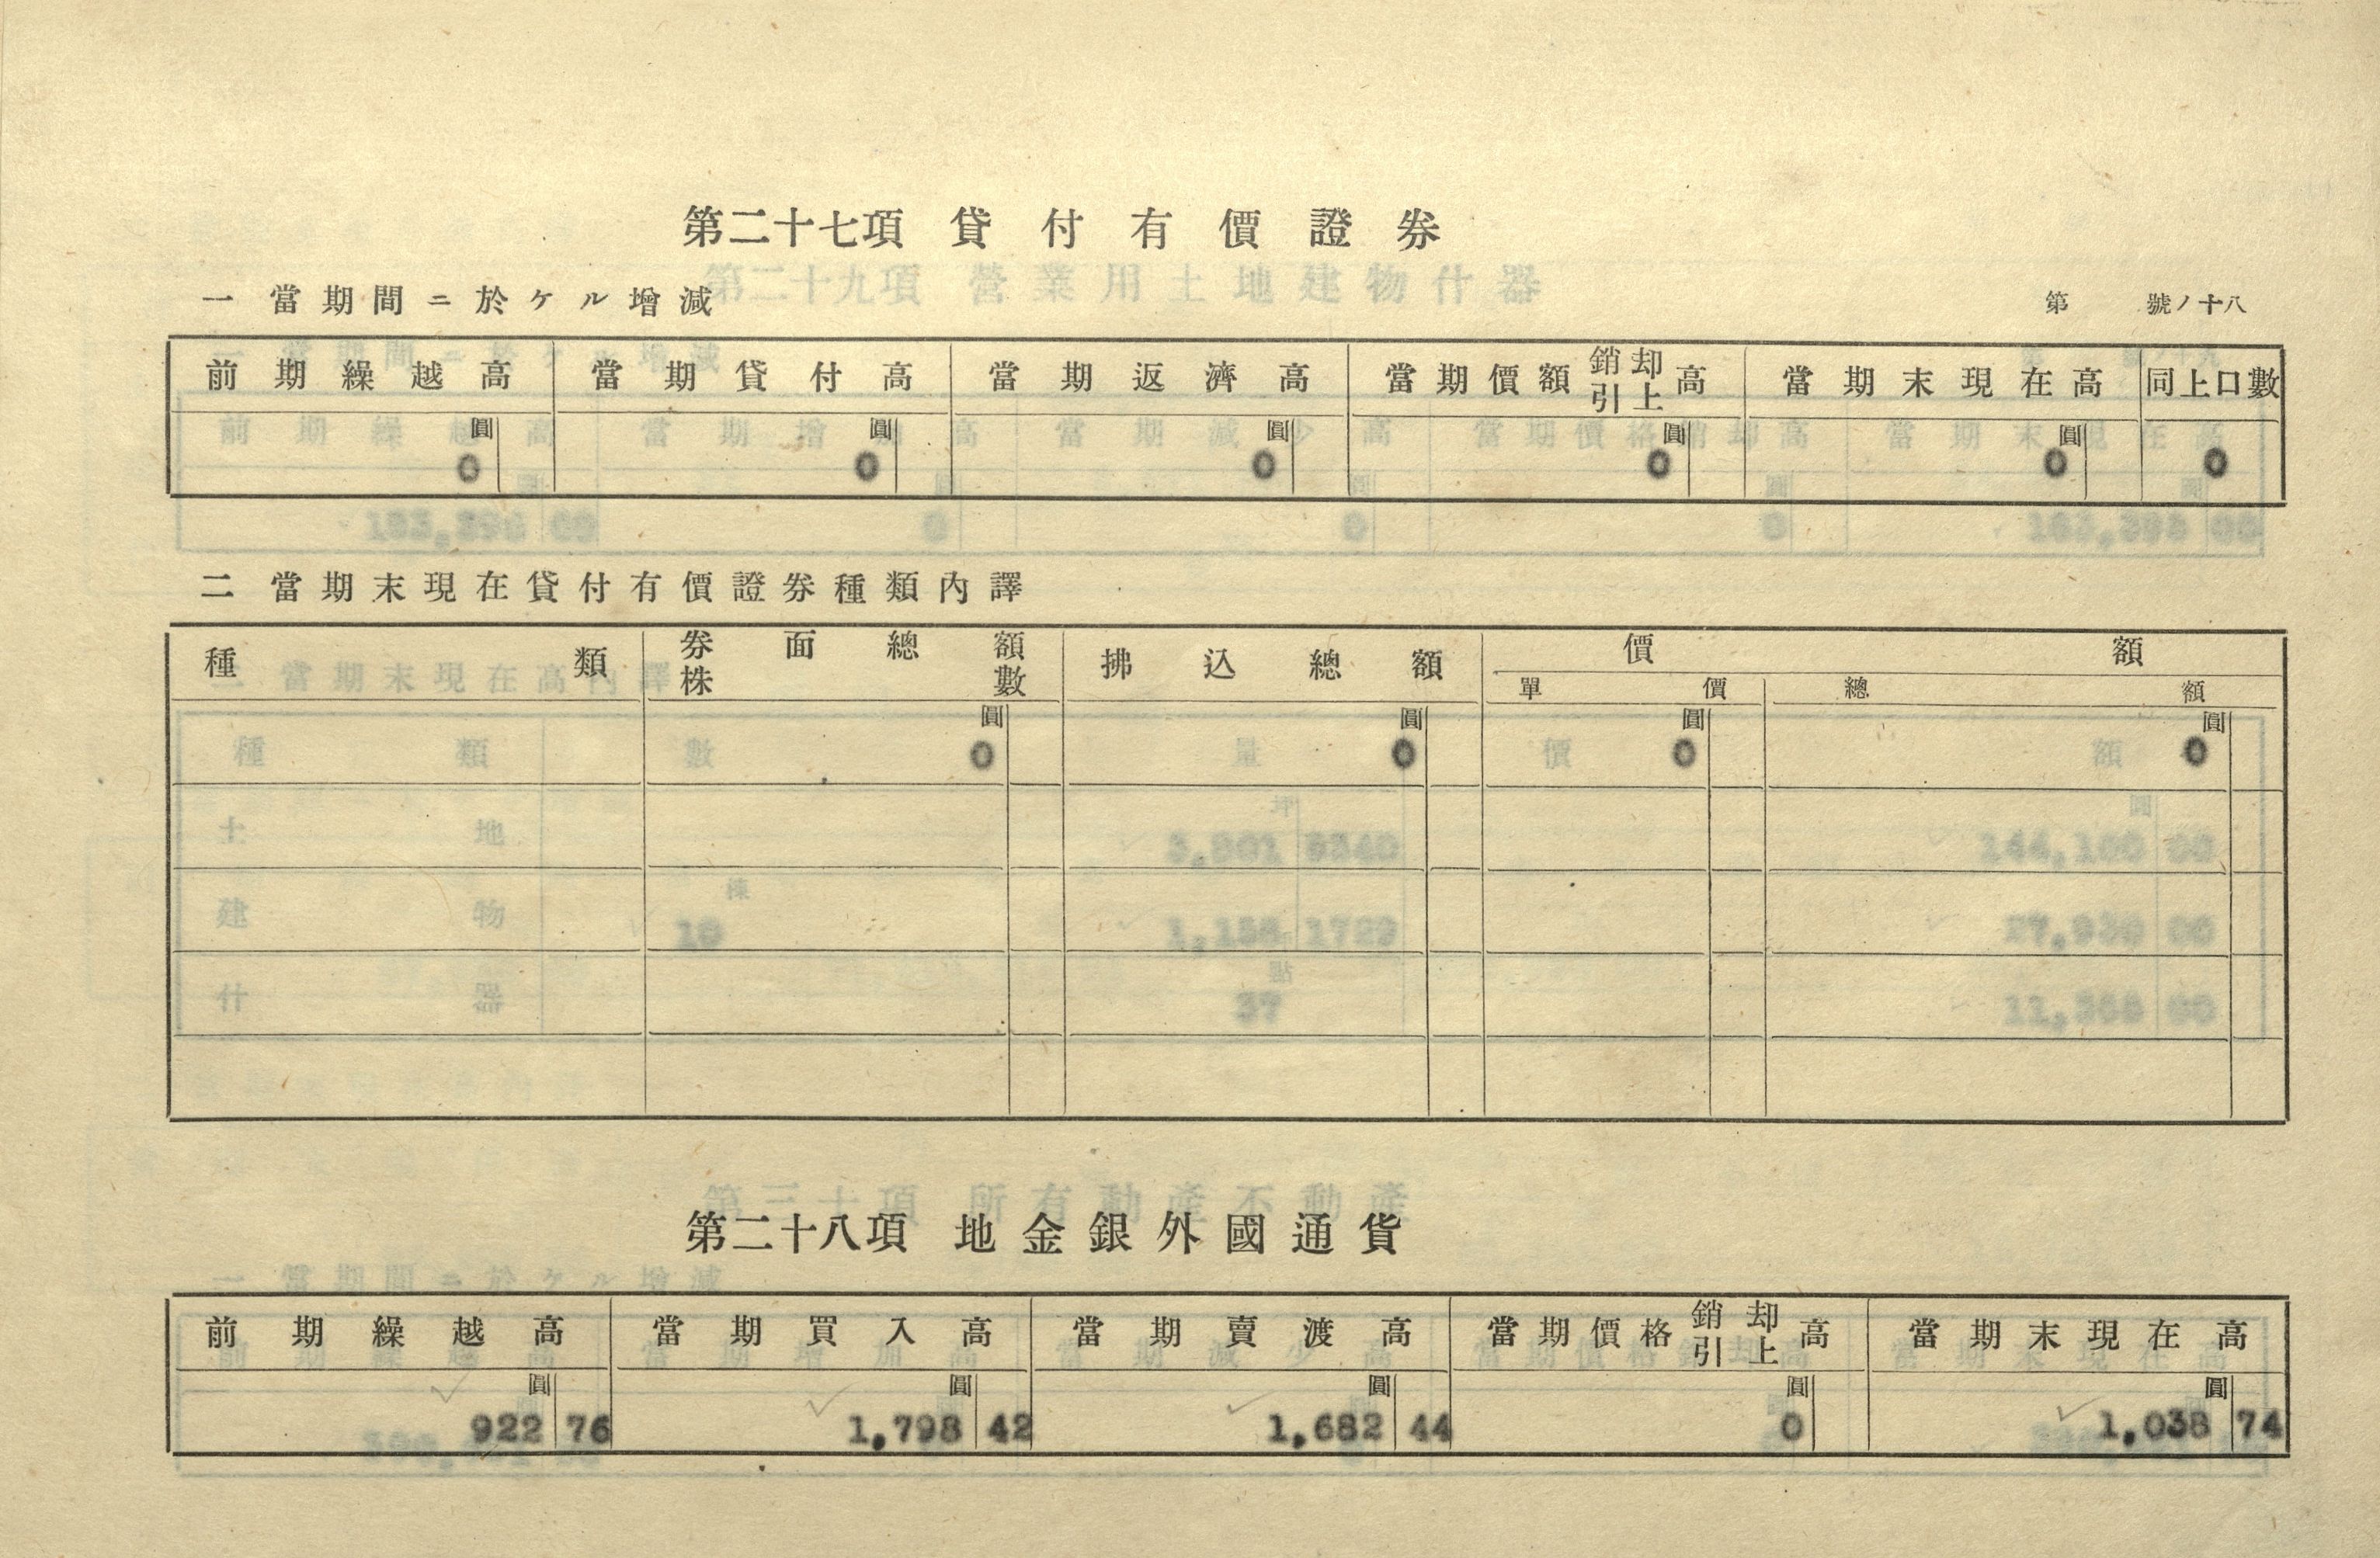 第二十七項 貸付有價證券
一 當期間ニ於ケル增減 第 號ノ十八
前期繰越高 當期貸付高 當期返濟高 當期價額銷却引上高 當期末現在高 同上口數
圓 圓 圓 圓 圓
0 0 0 0 0 0
二 當期末現在貸付有價證券種類內譯
種類 券面總額 株數 拂込總額 價額
單價 總額
圓 圓 圓 圓
0 0 0 0
第二十八項 地金銀外國通貨
前期繰越高 當期買入高 當期賣渡高 當期價格銷却引上高 當期末現在高
圓 圓 圓 圓 圓
922 76 1,798 42 1,682 44 0 1,038 74